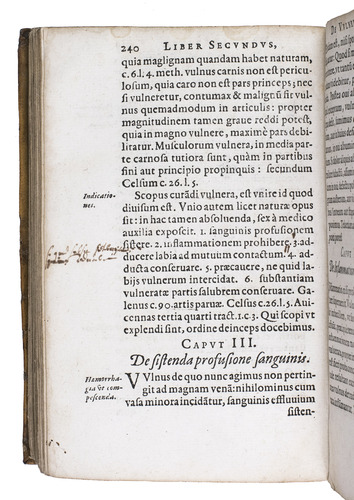 240 LIBER SECVNDVS,
quia maglignam quandam habet naturam,
c.6.l.4. meth. vulnus carnis non est pericu-
losum, quia caro non est pars princeps; nec
si vulneretur, contumax & malignū sit vul-
nus quemadmodum in articulis: propter
magnitudinem tamen graue reddi potest,
quia in magno vulnere, maximè pars debi-
litatur. Musculorum vulnera, in media par-
te carnosa tutiora sunt, quàm in partibus
fini aut principio propinquis: secundum
Celsum c.26.l.5.
Indicatio-
nes.
Scopus curādi vulnera, est vnire id quod
diuisum est. Vnio autem licet naturæ opus
sit: in hac tamen absoluenda, sex à medico
auxilia exposcit. 1. sanguinis profusionem
sistere. 2. inflammationem prohibere. 3. ad-
ducere labia ad mutuum contactum. 4. ad-
ducta conseruare. 5. præcauere, ne quid la-
bijs vulnerum intercidat. 6. substantiam
vulneratæ partis salubrem conseruare. Ga-
lenus c.90. artis paruæ. Celsus c.26.l.5. Aui-
cennas tertia quarti tract. 1.c.3. Qui scopi vt
explendi sint, ordine deinceps docebimus.
CAPVT III.
De sistenda profusione sanguinis.
Hæmorrha-
gia vt com-
pescenda.
VVlnus de quo nunc agimus non pertin-
git ad magnam venā: nihilominus cum
vasa minora incidātur, sanguinis effluuium
sisten-
DE VVLN
CAPVT